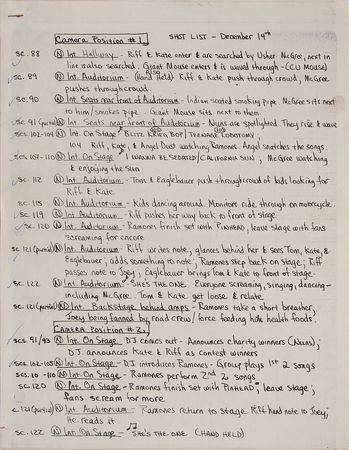 Camera Position # 1 SHOT LIST - December 14th
SC. 88 (N) Int. Hallway - Riff & Kate enter & are searched by Usher McGree, next in
line is also searched. Giant Mouse enters & is waved through - (CU Mouse)
SC. 89 (N) Int. Auditorium - (Hand Held) Riff & Kate push through crowd, McGree
pushes through crowd.
SC. 90 (N) Int. Seats near front of Auditorium - Indian seated smoking pipe. McGree sits next
to him/smokes pipe. Giant Mouse sits next to them.
SC. 91 (partial) (N) Int. Seats near front of Auditorium - Nuns are spotlighted. They rise & wave
SC. 102-104 (N) Int. On Stage - BLITZ KRIEG BOP, TEENAGE LOBOTOMY,
104 Riff, Kate, & Angel Dust watching Ramones. Angel snatches the songs.
SCS. 107-110 (N) Int. On Stage - I WANNA BE SEDATED/CALIFORNIA SUN, McGree watching
& enjoying the Sun
SC. 112 (N) Int. Auditorium - Tom & Eaglebauer push through crowd of kids looking for
Riff & Kate.
SC. 115 (N) Int. Auditorium - Kids dancing around. Monitors ride through on motorcycle.
SC. 119 (N) Int. Auditorium - Riff pushes her way back to front of stage.
SC. 120 (N) Int. Auditorium - Ramones finish set with PINHEAD, leave stage with fans
screaming for encore.
SC. 121 (partial) (N) Int. Auditorium - Riff writes note, glances behind her & sees Tom, Kate, &
Eaglebauer, adds something to note; Ramones step back on stage; Riff
passes note to Joey; Eaglebauer brings Tom & Kate to front of stage.
SC. 122 (N) Int. Auditorium - SHE'S THE ONE. Everyone screaming, singing, dancing -
including McGree. Tom & Kate get loose & relate.
SC. 121 (partial) (N) Int. Backstage behind amps - Ramones take a short breather,
Joey being fanned by road crew/force feeding him health foods.
CAMERA POSITION # 2
SCS. 91/93 (N) Int. On Stage - DJ comes out - Announces charity winners (Nuns),
DJ announces Kate & Riff as contest winners
SCS. 102-105 (N) Int. On Stage - DJ introduces Ramones - Group plays 1st 2 songs
SCS. 10 -110 (N) Int. On Stage - Ramones perform 2nd 2 songs
SC 120 (N) Int. On Stage - Ramones finish set with PINHEAD, leave stage;
fans scream for more
C. 121 (partial) (N) Int. Auditorium - Ramones return to stage. Riff hand note to Joey,
He reads it
SC. 122 (N) Int. On Stage - SHE'S THE ONE (HAND HELD)